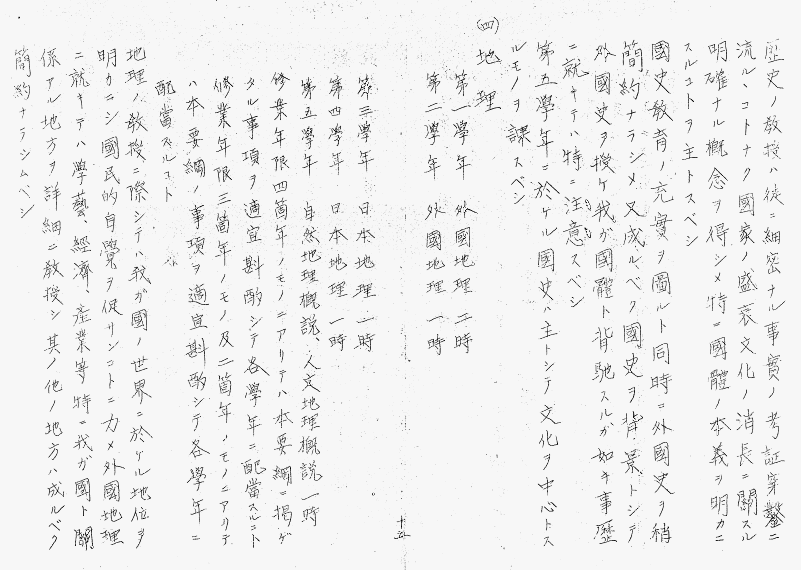 歴史ノ教授ハ徒ニ細密ナル事實ノ考証穿鑿ニ
流ルヽコトナク國家ノ盛衰文化ノ消長ニ關スル
明確ナル概念ヲ得シメ特ニ國體ノ本義ヲ明カニ
スルコトヲ主トスベシ
國史教育ノ充實ヲ圖ルト同時ニ外國史ヲ稍
簡約ナラシメ又成ルベク國史ヲ背景トシテ
外國史ヲ授ケ我ガ國體ト背馳スルガ如キ事歴
ニ就キテハ特ニ注意スベシ
第五學年ニ於ケル國史ハ主トシテ文化ヲ中心トス
ルモノヲ課スベシ
(四) 地理
第一學年 外國地理 二時
第二學年 外國地理 一時
第三學年 日本地理 二時
第四學年 日本地理 一時
第五學年 自然地理概説、人文地理概説 一時
修業年限四箇年ノモノニアリテハ本要綱ニ掲ゲ
タル事項ヲ適宜斟酌シテ各學年ニ配當スルコト
修業年限三箇年ノモノ及二箇年ノモノニアリテ
ハ本要綱ノ事項ヲ適宜斟酌シテ各學年ニ
配當スルコト
地理ノ教授ニ際シテハ我ガ國ノ世界ニ於ケル地位ヲ
明カニシ國民的自覺ヲ促サンコトニ力メ外國地理
ニ就キテハ學藝、經濟、産業等特ニ我ガ國ト關
係アル地方ヲ詳細ニ教授シ其ノ他ノ地方ハ成ルベク
簡約ナラシムベシ
十五